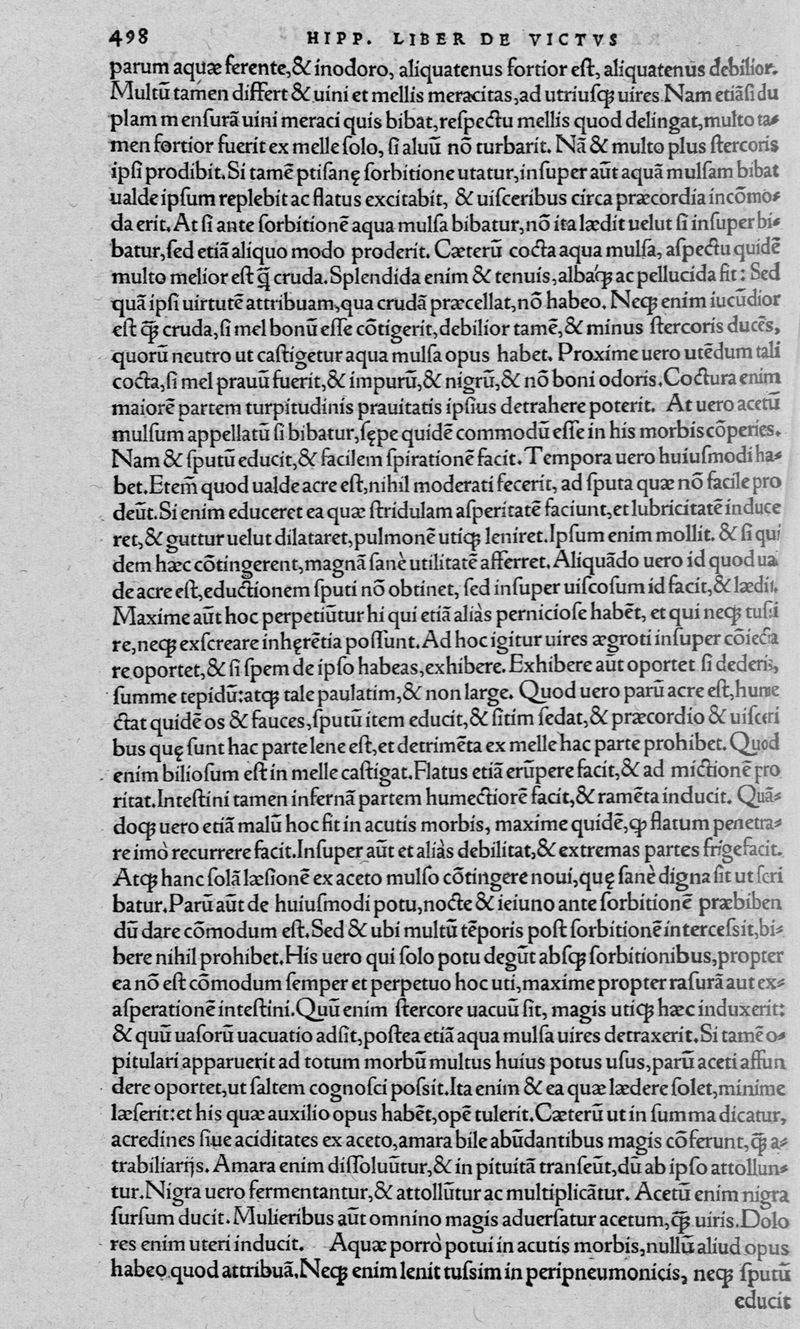 498 HIPP. LIBER DE VICTVS
parum aquæ ferente,& inodoro, aliquatenus fortior eſt, aliquatenus debilior.
Multũ tamen differt & uini et mellis meracitas,ad utriuſq; uires Nam etiãſi du
plam menſurã uini meraci quis bibat,reſpectu mellis quod delingat,multo ta⸗
men fortior fuerit ex melle ſolo, ſi aluũ nõ turbarit. Nã & multo plus ſtercoris
ipſi prodibit.Si tamẽ ptiſanę ſorbitione utatur,inſuper aũt aquã mulſam bibat
ualde ipſum replebit ac flatus excitabit, & uiſceribus circa præcordia incõmo⸗
da erit.At ſi ante ſorbitionẽ aqua mulſa bibatur,nõ ita lædit uelut ſi inſuper bi⸗
batur,ſed etiã aliquo modo proderit. Cæterũ cocta aqua mulſa, aſpectu quidẽ
multo melior eſt q̃ cruda.Splendida enim & tenuis,albaq́; ac pellucida fit: Sed
quã ipſi uirtutẽ attribuam,qua crudã præcellat,nõ habeo. Neq; enim iucũdior
eſt q̃; cruda,ſi mel bonũ eſſe cõtigerit,debilior tamẽ,& minus ſtercoris ducẽs,
quorũ neutro ut caſtigetur aqua mulſa opus habet. Proxime uero utẽdum tali
cocta,ſi mel prauũ fuerit,& impurũ,& nigrũ,& nõ boni odoris.Coctura enim
maiorẽ partem turpitudinis prauitatis ipſius detrahere poterit. At uero acetũ
mulſum appellatũ ſi bibatur,ſępe quidẽ commodũ eſſe in his morbis cõperies.
Nam & ſputũ educit,& facilem ſpirationẽ facit.Tempora uero huiuſmodi ha⸗
bet.Etem̃ quod ualde acre eſt,nihil moderati fecerit, ad ſputa quæ nõ facile pro
deũt.Si enim educeret ea quæ ſtridulam aſperitatẽ faciunt,et lubricitatẽ induce
ret,& guttur uelut dilataret,pulmonẽ utiq; leniret.Ipſum enim mollit. & ſi qui
dem hæc cõtingerent,magnã ſanè utilitatẽ afferret.Aliquãdo uero id quod ual
de acre eſt,eductionem ſputi nõ obtinet, ſed inſuper uiſcoſum id facit,& lædit.
Maxime aũt hoc perpetiũtur hi qui etiã aliàs pernicioſe habẽt, et qui neq; tuſſi
re,neq; exſcreare inhęrẽtia poſſunt.Ad hoc igitur uires ægroti inſuper cõiecta
re oportet,& ſi ſpem de ipſo habeas,exhibere. Exhibere aũt oportet ſi dederis,
ſumme tepidũ:atq; tale paulatim,& non large. Quod uero parũ acre eſt,hume
ctat quidẽ os & fauces,ſputũ item educit,& ſitim ſedat,& præcordio & uiſceri
bus quę ſunt hac parte lene eſt,et detrimẽta ex melle hac parte prohibet. Quod
enim bilioſum eſt in melle caſtigat.Flatus etiã erũpere facit,& ad mictionẽ pro
ritat.Inteſtini tamen infernã partem humectiorẽ facit,& ramẽta inducit. Quã⸗
doq; uero etiã malũ hoc fit in acutis morbis, maxime quidẽ,q; flatum penetra⸗
re imò recurrere facit.Inſuper aũt et aliàs debilitat,& extremas partes frigefacit.
Atq; hanc ſolã læſionẽ ex aceto mulſo cõtingere noui,quę ſanè digna ſit ut ſcri
batur.Parũ aũt de huiuſmodi potu,nocte & ieiuno ante ſorbitionẽ præbiben
dũ dare cõmodum eſt.Sed & ubi multũ tẽporis poſt ſorbitionẽ interceſsit,bi⸗
bere nihil prohibet.His uero qui ſolo potu degũt abſq; ſorbitionibus,propter
ea nõ eſt cõmodum ſemper et perpetuo hoc uti,maxime propter raſurã aut ex⸗
aſperationẽ inteſtini.Quũ enim ſtercore uacuũ ſit, magis utiq; hæc induxerit:
& quũ uaſorũ uacuatio adſit,poſtea etiã aqua mulſa uires detraxerit.Si tamẽ o⸗
pitulari apparuerit ad totum morbũ multus huius potus uſus,parũ aceti affun
dere oportet,ut ſaltem cognoſci poſsit.Ita enim & ea quæ lædere ſolet,minime
læſerit:et his quæ auxilio opus habẽt,opẽ tulerit.Cæterũ ut in ſumma dicatur,
acredines ſiue aciditates ex aceto,amara bile abũdantibus magis cõferunt,q̃; a⸗
trabiliarijs. Amara enim diſſoluũtur,& in pituitã tranſeũt,dũ ab ipſo attollun⸗
tur.Nigra uero fermentantur,& attollũtur ac multiplicãtur. Acetũ enim nigra
ſurſum ducit.Mulieribus aũt omnino magis aduerſatur acetum,q̃; uiris.Dolo
res enim uteri inducit. Aquæ porrò potui in acutis morbis,nullũ aliud opus
habeo quod attribuã.Neq; enim lenit tuſsim in peripneumonicis, neq; ſputũ
educit